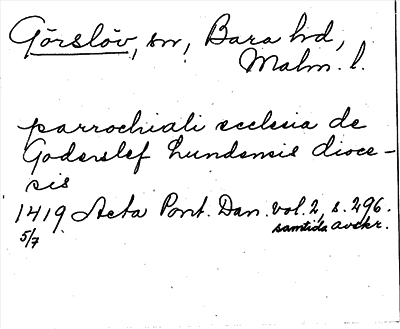 Görslöv, sn, Bara hd,
Malm. l.
parrochiali ecclesia de
Goderslef Lundensis dioce-
sis
1419 Acta Pont. Dan. vol. 2, s. 296.
5/7 samtida avskr.